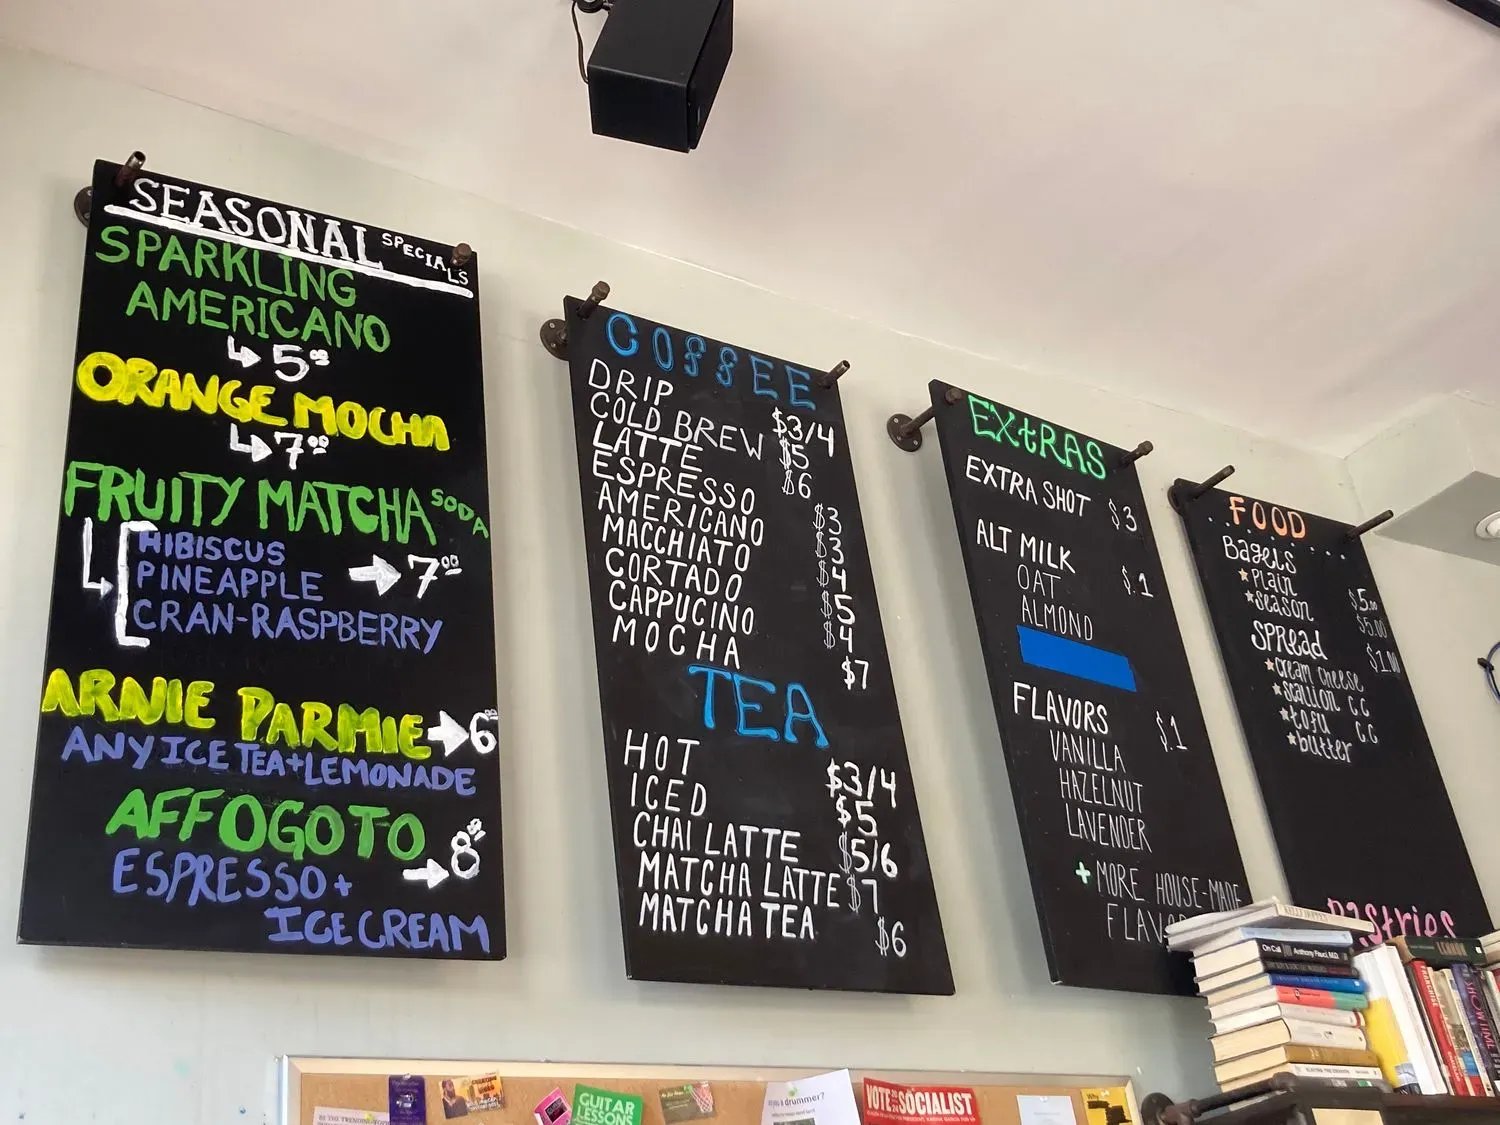 SEASONAL SPECIALS
SPARKLING
AMERICANO
5.00
ORANGE MOCHA
7.00
FRUITY MATCHA SODA
HIBISCUS
PINEAPPLE
CRAN-RASPBERRY
7.00
ARNIE PARMIE 6.00
ANY ICE TEA + LEMONADE
AFFOGOTO
8.00
ESPRESSO +
ICE CREAM
COFFEE
DRIP $3/4
COLD BREW $5
LATTE $6
ESPRESSO $3
AMERICANO $3
MACCHIATO $4
CORTADO $5
CAPPUCINO $4
MOCHA $7
TEA
HOT $3/4
ICED $5
CHAI LATTE $5/6
MATCHA LATTE $7
MATCHA TEA $6
EXtRAS
EXTRA SHOT $3
ALT MILK $.1
OAT
ALMOND
FLAVORS $.1
VANILLA
HAZELNUT
LAVENDER
+ MORE HOUSE-MADE
FLAVO
FOOD
Bagels
Plain $5.00
season $5.00
SPREAD $1.00
cream cheese
scallion c.c
tofu c.c
butter
Pastries
On Call Anthony Fauci, M.D.
SHOWTIME
GUITAR
LESSONS
drummer?
VOTE 2024 SOCIALIST